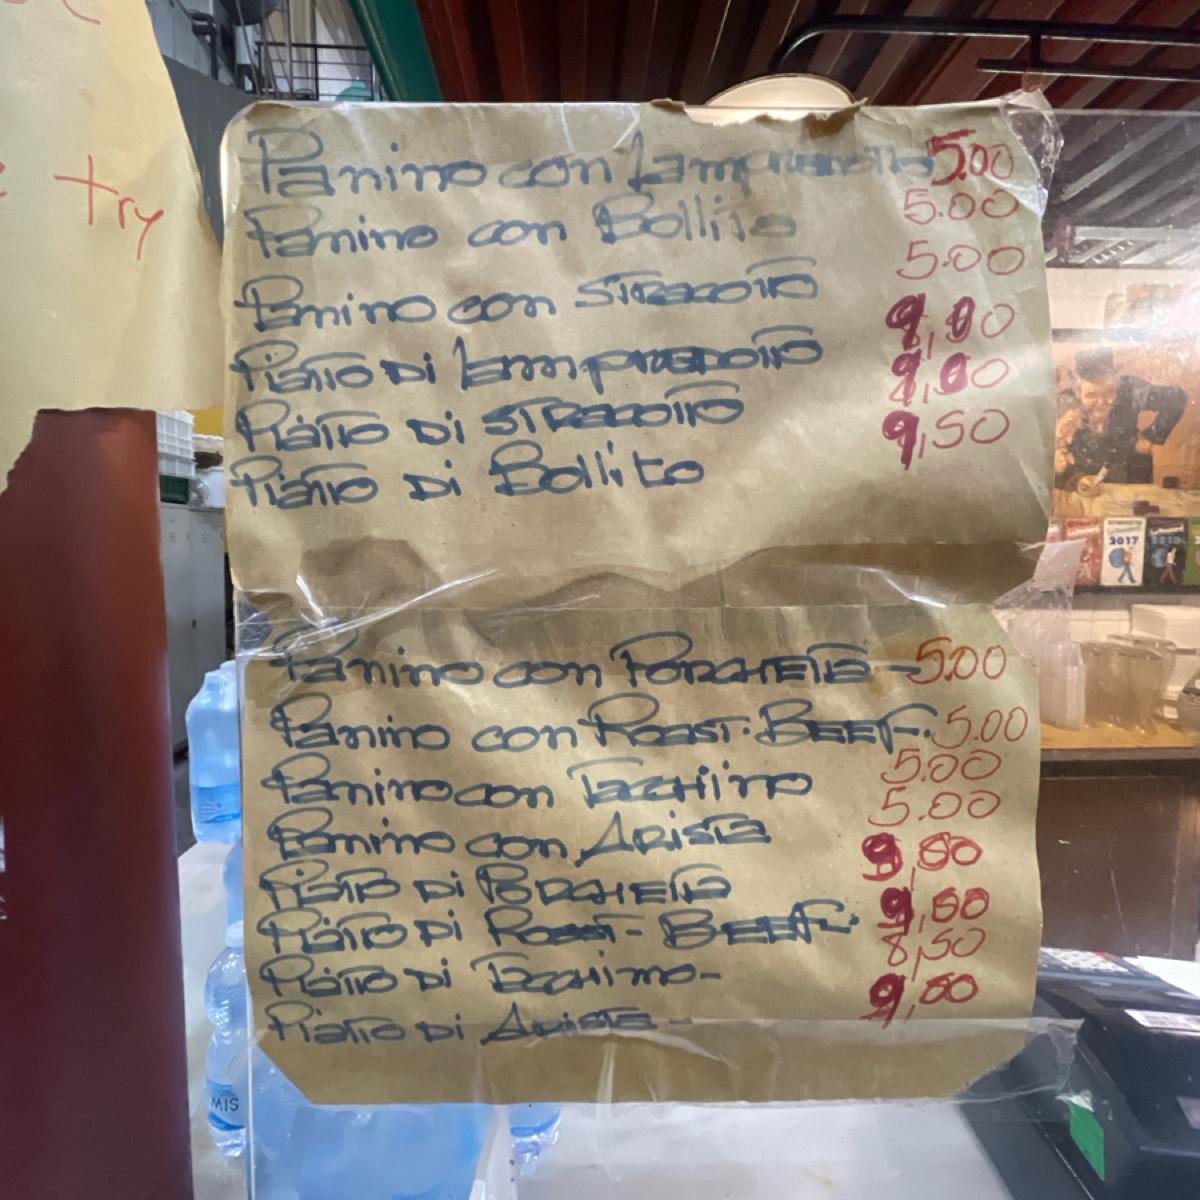 try
Panino con Lampredotto 5.00
Panino con Bollito 5.00
Panino con STRacoTTo 5.00
PiaTTo Di Lampredotto 9,00
PiaTTo Di STRacoTTo 9,00
PiaTTo Di Bollito 9,50
Panino con PORCHETTa - 5.00
Panino con Roast.BEEF. 5.00
Panino con TacCHino 5.00
Panino con ARISTa 5.00
PiaTTo Di PORCHETTa 9,50
PiaTTo Di Roast-BEEF. 9,00
PiaTTo Di TaccHino- 8,50
PiaTTo Di ARISTa - 9,00
2017
2018
MIS